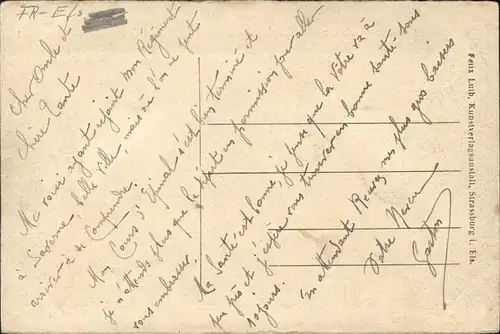 FR - Els
Cher Oncle et
Chère Tante
Me voici ayant rejoint mon Régiment
à Saverne, belle ville mais où l'on ne peut
arriver à se comprendre.
Mon Cours d'Epinal s'est bien terminé et
je n'attends plus que le départ en permission pour aller
vous embrasser.
Ma Santé est bonne, je pense que la Votre va à
peu près et j'espère vous trouver en bonne santé sous
10 jours.
En attendant Recevez mes plus gros baisers
Votre Neveu
Gaston
Felix Luib, Kunstverlagsanstalt, Strassburg i. Els.